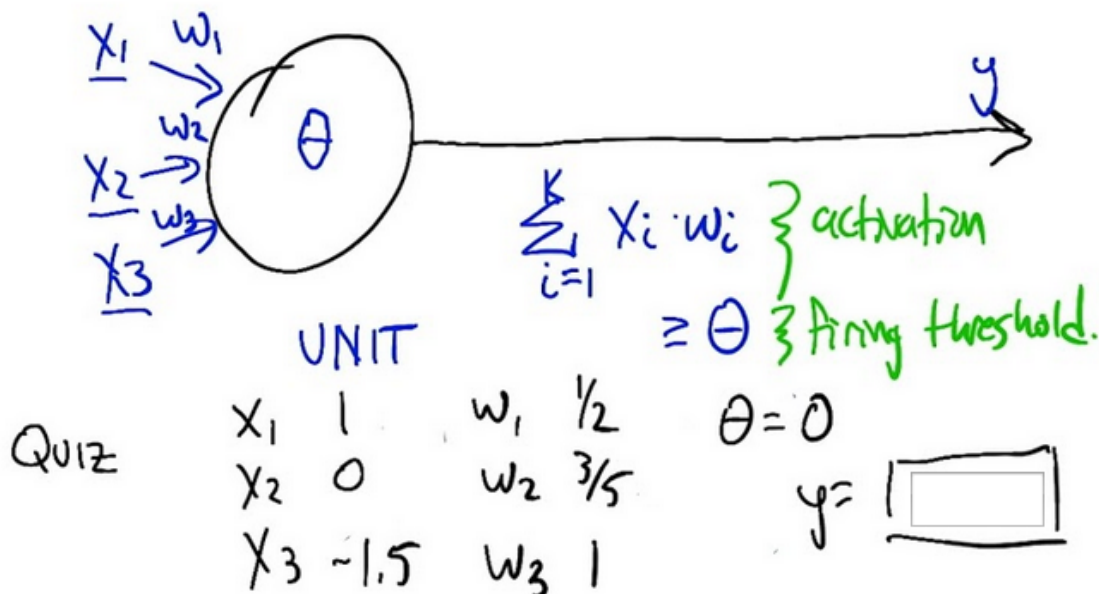 X1 w1
w2
X2
w3
X3
θ
y
K
∑ Xi · wi } activation
i=1
≥ θ } firing threshold.
UNIT
QUIZ
X1 1 w1 1/2 θ = 0
X2 0 w2 3/5 y=
X3 -1.5 w3 1